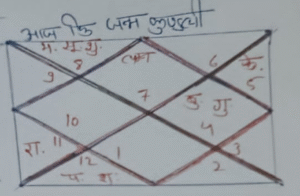 आज कि जन्म कुण्डली
मं. सू. शु.
लग्न
के.
9
8
6
5
7
बु. गु
10
4
रा. 11
3
12
1
2
च श.